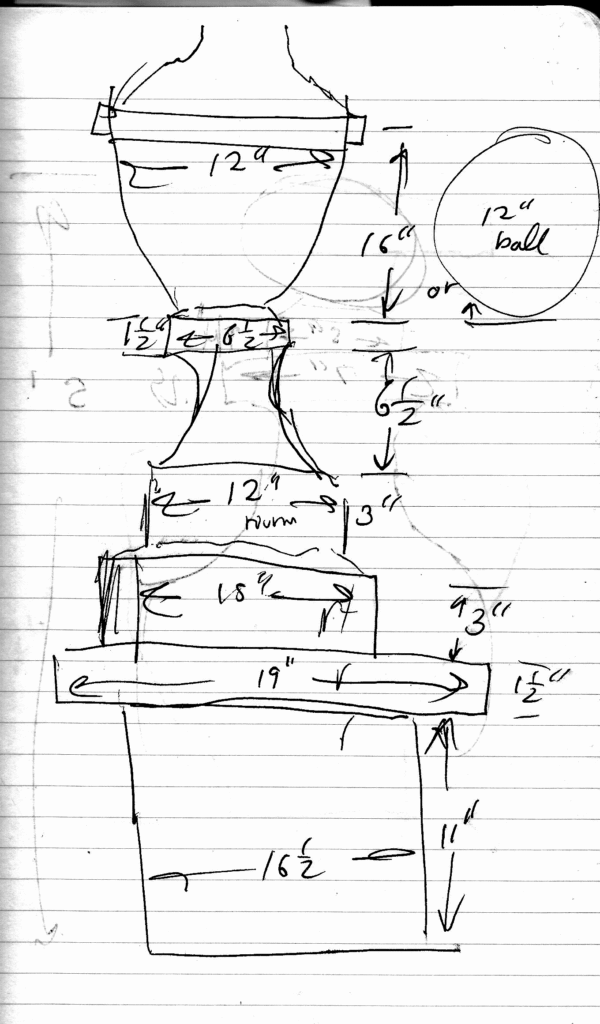 12"
12"
ball
16"
or
1 1/2"
6 1/2
6 1/2"
12"
3"
18"
3"
19"
1 1/2"
11"
16 1/2